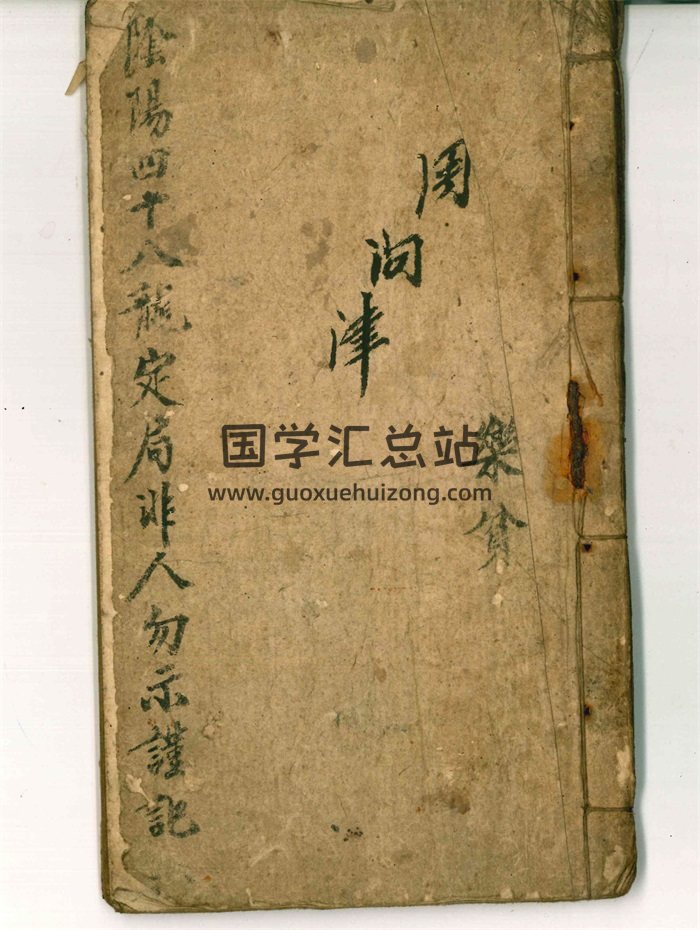 陰陽四十八龍定局非人勿示謹記
周问津
樂貧
国学汇总站
www.guoxuehuizong.com